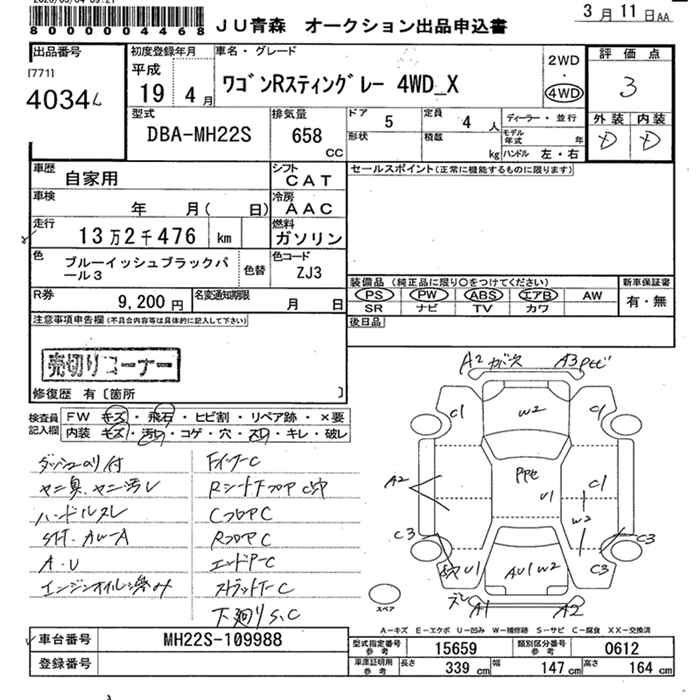 8 0 0 0 0 0 4 4 6 8
JU青森 オークション出品申込書
3月11日AA
出品番号
[771]
4034
初度登録年月
平成
19 4月
車名・グレード
ワゴンRスティングレー 4WD_X
2WD
・
4WD
評価点
3
外装 内装
D D
型式
DBA-MH22S
排気量
658
CC
ドア 5
定員 4 人
形状
積載 kg
ディーラー・並行
モデル年式 年
ハンドル 左・右
車歴
自家用
シフト
CAT
セールスポイント(正常に機能するものに限ります)
車検
年 月( 日)
冷房
AAC
走行
13万2千476 km
燃料
ガソリン
色
ブルーイッシュブラックパール3
色替
色コード
ZJ3
装備品(純正品に限り○をつけてください)
PS PW ABS エアB AW
SR ナビ TV カワ
新車保証書
有・無
R券
9,200円
名変通知期限
月 日
後日品
注意事項申告欄(不具合内容等は具体的に記入して下さい)
売切りコーナー
修復歴 有〔箇所 〕
検査員記入欄
FW キズ・飛石・ヒビ割・リペア跡・×要
内装 キズ・汚れ・コゲ・穴・スリ・キレ・破レ
ダッシュのり付
ヤニ臭、ヤニ汚レ
ハンドルスレ
A.U
エンジンオイル滲み
FインナーC
CフロアC
RフロアC
エンドアーC
ストラットアーC
下廻りS.C
A2 ガキズ
A3
C1
W2
C1
A2
U1
C1
W2
C3
C3
U1
AU1W2
C3
A1
A2
スペア
A-キズ E-エクボ U-凹み W-補修跡 S-サビ C-腐食 XX-交換済
車台番号
MH22S-109988
登録番号
型式指定番号参考
15659
類別区分番号参考
0612
車庫証明用参考
長さ 339 cm
幅 147 cm
高さ 164 cm